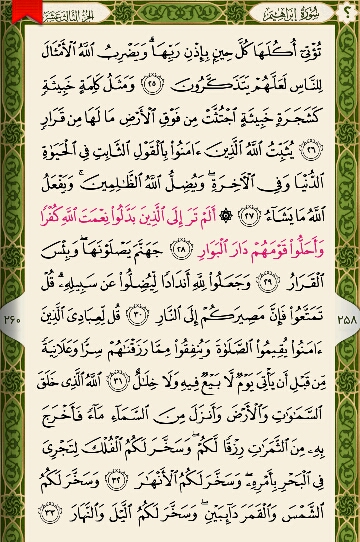 الجزء الثالث عشر
سورة إبراهيم
؟
تُؤْتِىٓ أُكُلَهَا كُلَّ حِينٍۭ بِإِذْنِ رَبِّهَا ۗ وَيَضْرِبُ ٱللَّهُ ٱلْأَمْثَالَ
لِلنَّاسِ لَعَلَّهُمْ يَتَذَكَّرُونَ ٢٥ وَمَثَلُ كَلِمَةٍ خَبِيثَةٍ
كَشَجَرَةٍ خَبِيثَةٍ ٱجْتُثَّتْ مِن فَوْقِ ٱلْأَرْضِ مَا لَهَا مِن قَرَارٍ
٢٦ يُثَبِّتُ ٱللَّهُ ٱلَّذِينَ ءَامَنُوا۟ بِٱلْقَوْلِ ٱلثَّابِتِ فِى ٱلْحَيَوٰةِ
ٱلدُّنْيَا وَفِى ٱلْءَاخِرَةِ ۖ وَيُضِلُّ ٱللَّهُ ٱلظَّٰلِمِينَ ۚ وَيَفْعَلُ
ٱللَّهُ مَا يَشَآءُ ٢٧ ۞ أَلَمْ تَرَ إِلَى ٱلَّذِينَ بَدَّلُوا۟ نِعْمَتَ ٱللَّهِ كُفْرًا
وَأَحَلُّوا۟ قَوْمَهُمْ دَارَ ٱلْبَوَارِ ٢٨ جَهَنَّمَ يَصْلَوْنَهَا ۖ وَبِئْسَ
ٱلْقَرَارُ ٢٩ وَجَعَلُوا۟ لِلَّهِ أَندَادًا لِّيُضِلُّوا۟ عَن سَبِيلِهِۦ ۗ قُلْ
تَمَتَّعُوا۟ فَإِنَّ مَصِيرَكُمْ إِلَى ٱلنَّارِ ٣٠ قُل لِّعِبَادِىَ ٱلَّذِينَ
ءَامَنُوا۟ يُقِيمُوا۟ ٱلصَّلَوٰةَ وَيُنفِقُوا۟ مِمَّا رَزَقْنَٰهُمْ سِرًّا وَعَلَانِيَةً
مِّن قَبْلِ أَن يَأْتِىَ يَوْمٌ لَّا بَيْعٌ فِيهِ وَلَا خِلَٰلٌ ٣١ ٱللَّهُ ٱلَّذِى خَلَقَ
ٱلسَّمَٰوَٰتِ وَٱلْأَرْضَ وَأَنزَلَ مِنَ ٱلسَّمَآءِ مَآءً فَأَخْرَجَ
بِهِۦ مِنَ ٱلثَّمَرَٰتِ رِزْقًا لَّكُمْ ۖ وَسَخَّرَ لَكُمُ ٱلْفُلْكَ لِتَجْرِىَ
فِى ٱلْبَحْرِ بِأَمْرِهِۦ ۖ وَسَخَّرَ لَكُمُ ٱلْأَنْهَٰرَ ٣٢ وَسَخَّرَ لَكُمُ
ٱلشَّمْسَ وَٱلْقَمَرَ دَآئِبَيْنِ ۖ وَسَخَّرَ لَكُمُ ٱلَّيْلَ وَٱلنَّهَارَ ٣٣
٢٥٨
٢٦٠